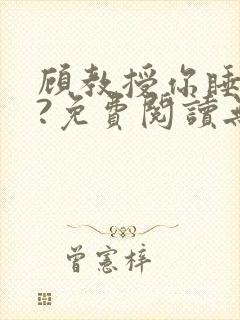 顧教授你睡
?免費閱讀無
曾憲梓